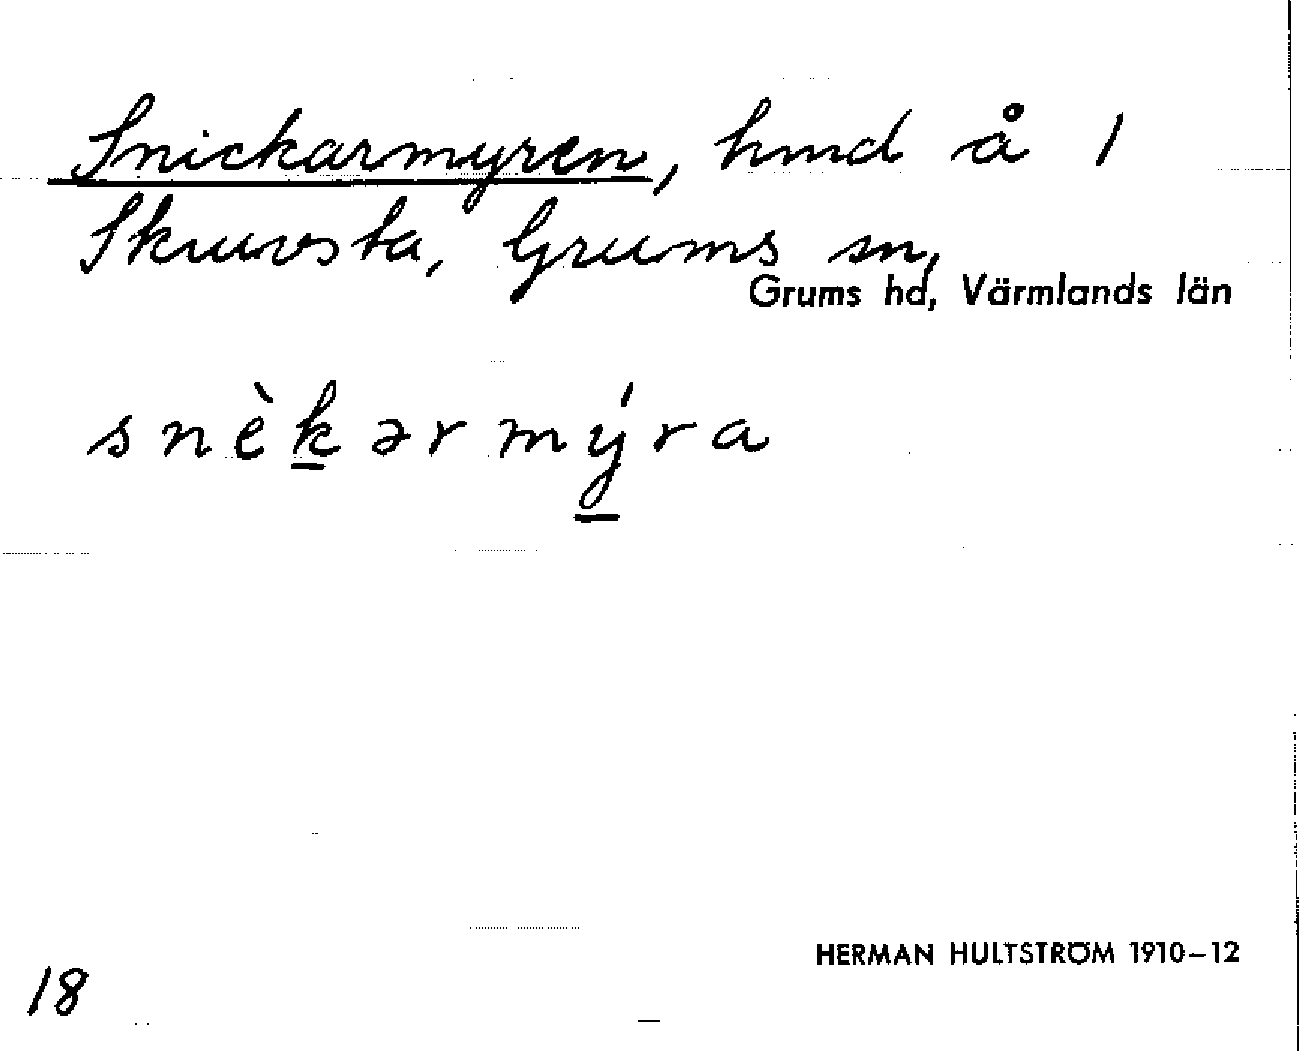 Snickarmyren, hmd å 1
Skruvsta, Grums sn,
Grums hd, Värmlands län
snèk̲ərmý̲ra
HERMAN HULTSTRÖM 1910–12
18